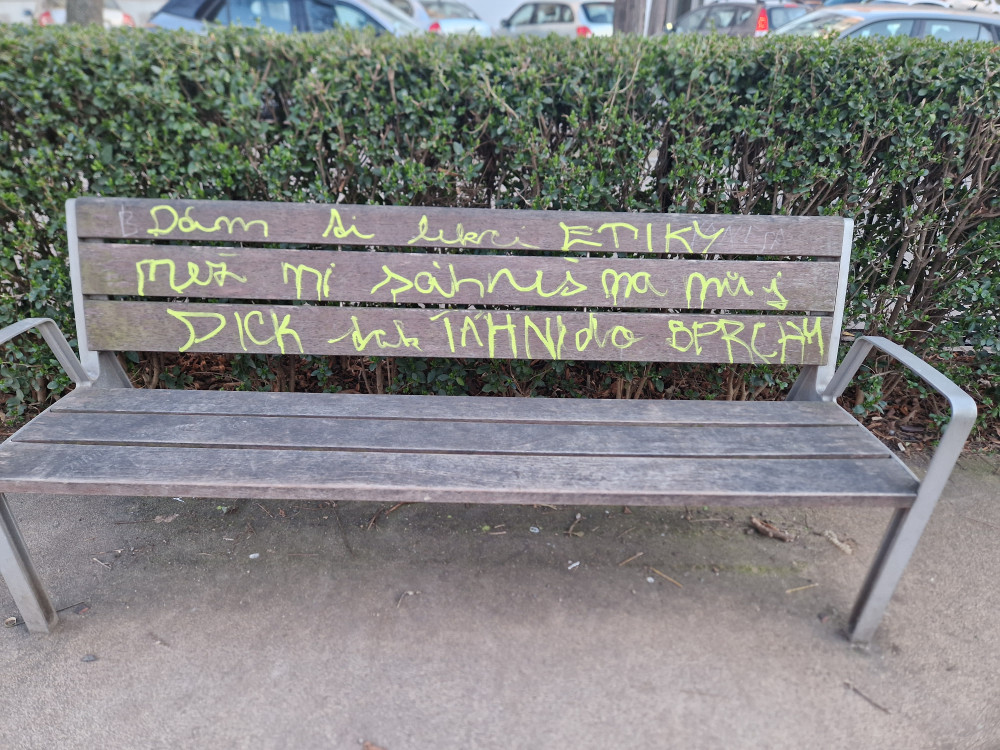 Dám si lekci ETIKY
než mi sáhneš na můj
DICK tak TÁHNI do BPRCHY